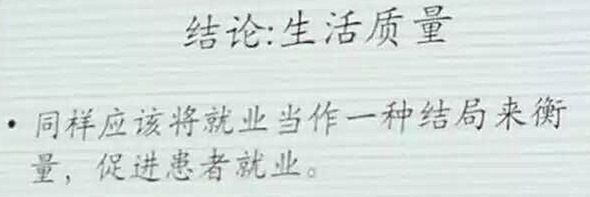 结论:生活质量
• 同样应该将就业当作一种结局来衡
量，促进患者就业。